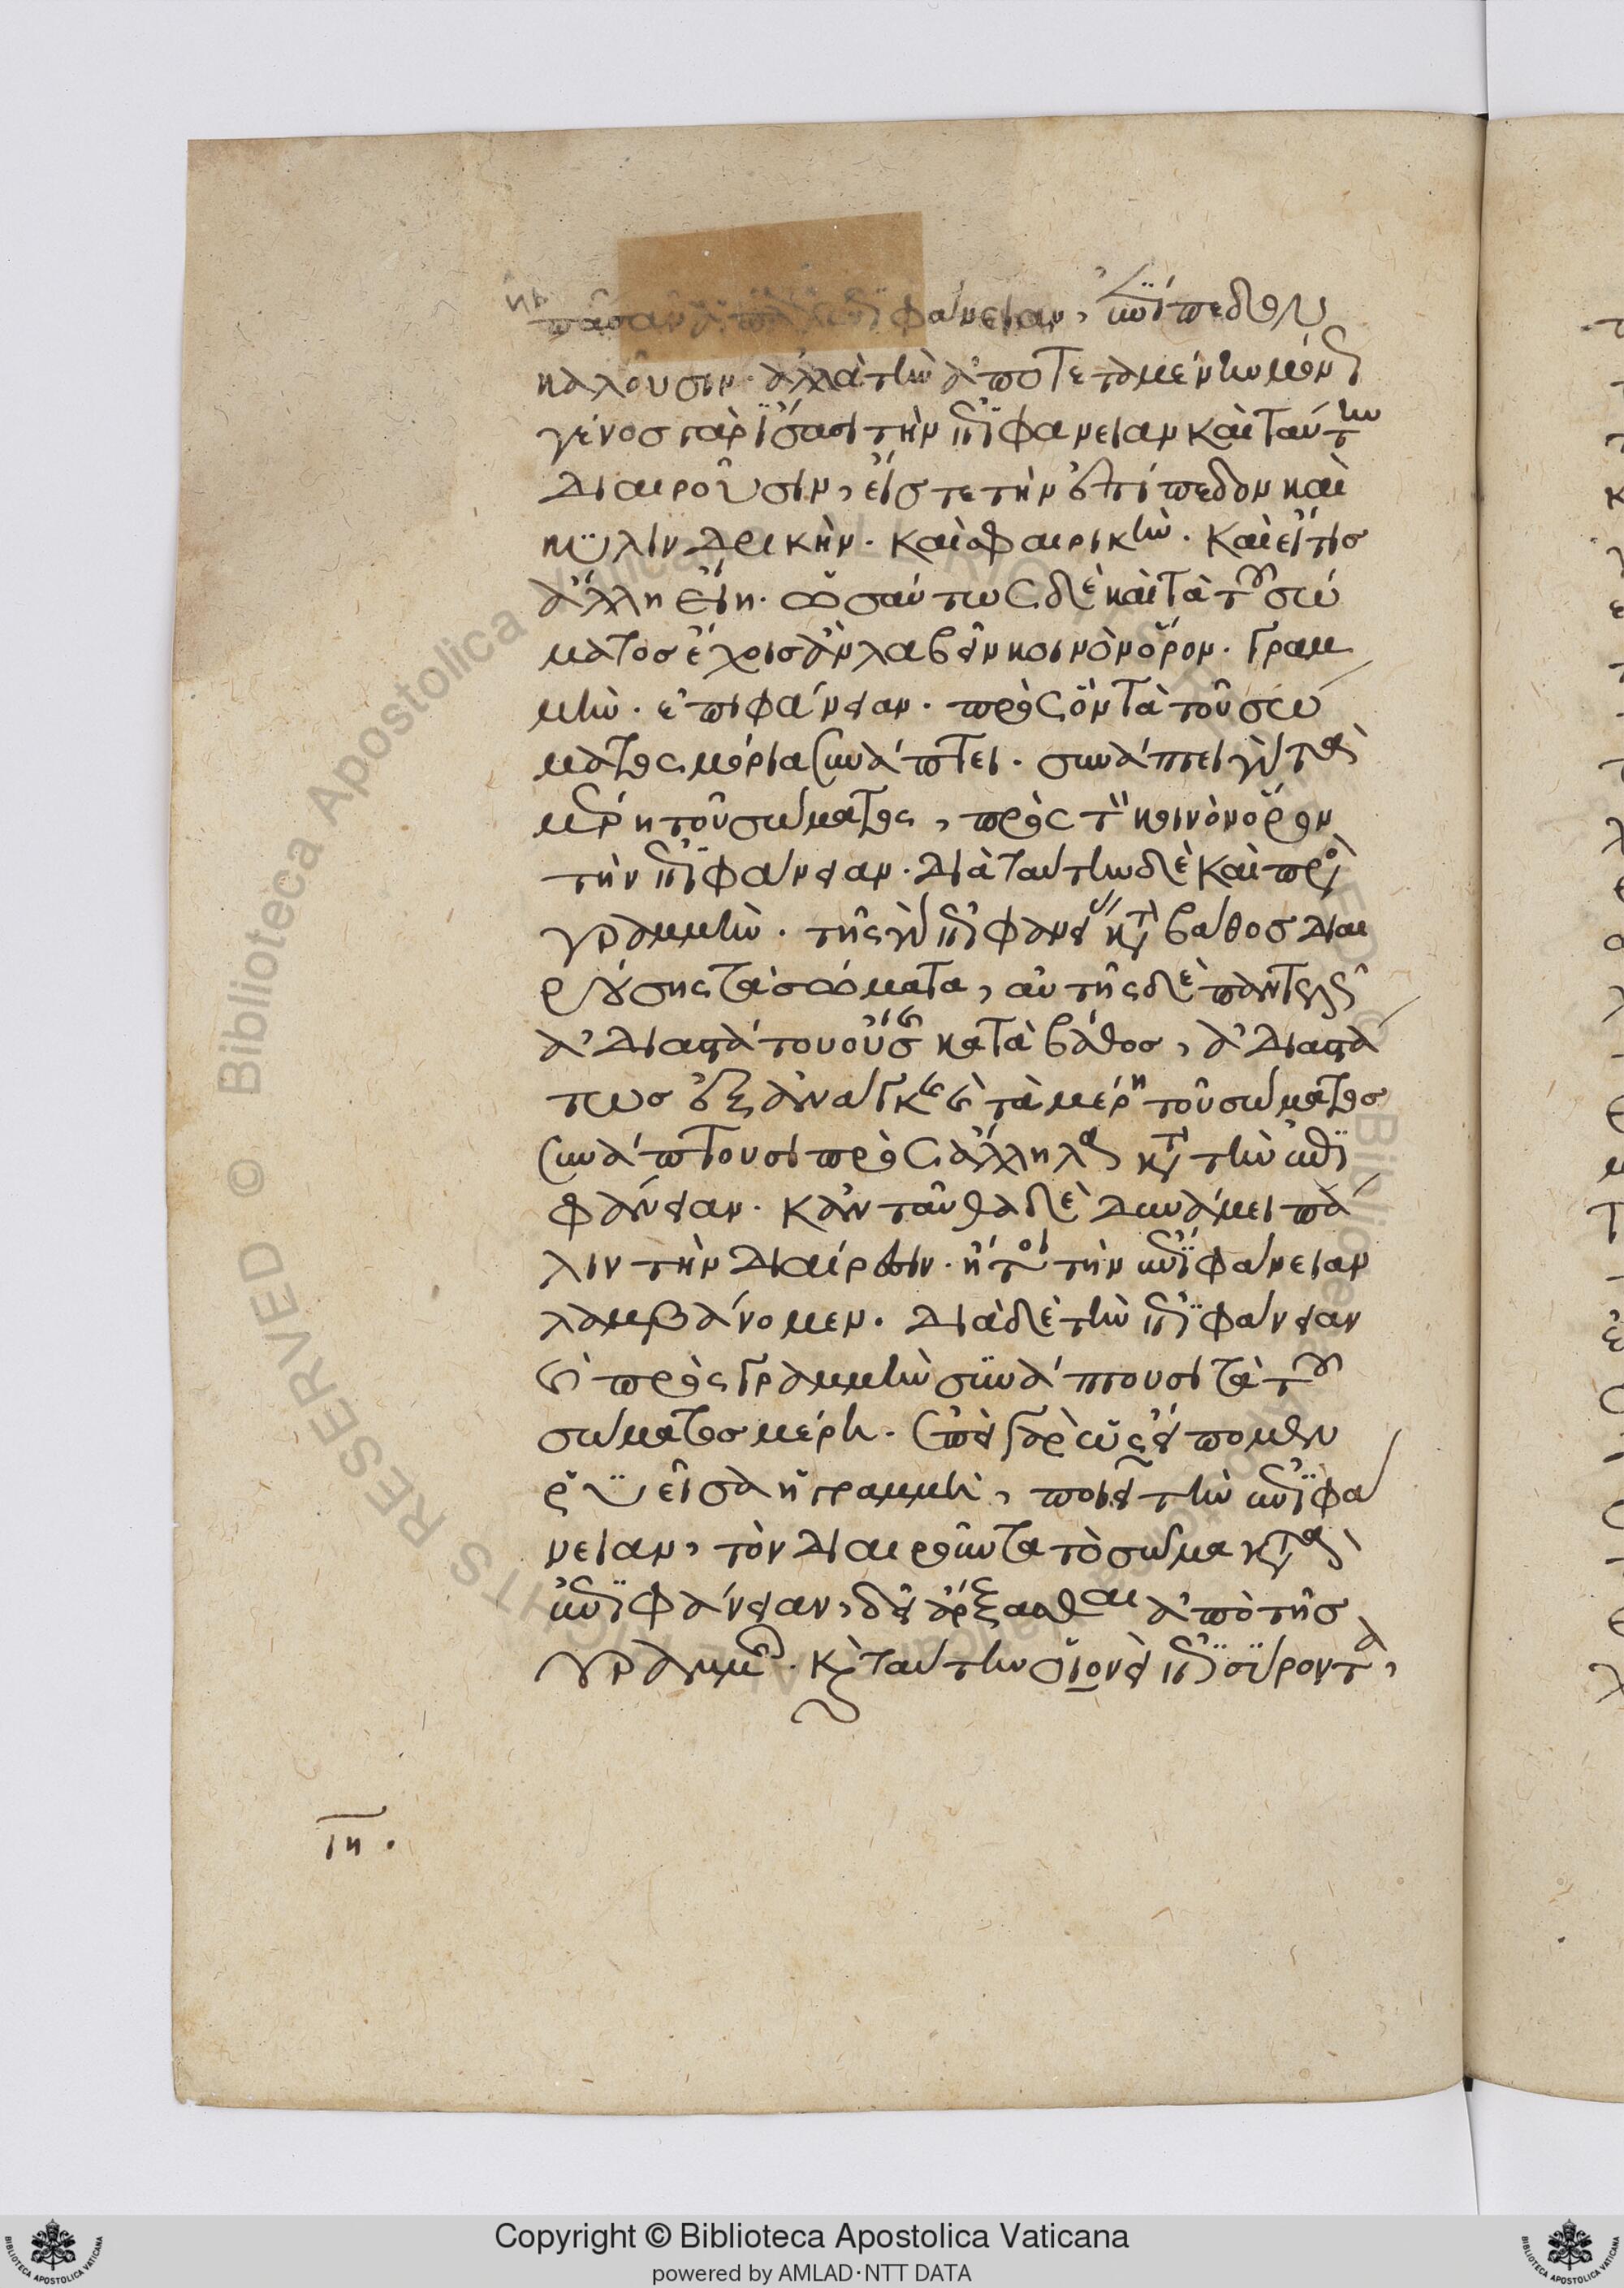 πᾶσαν ἁπλῶς ἐπιφάνειαν, ἐπίπεδον
καλοῦσιν. ἀλλὰ τὴν ἀποτεταμένην μόνην
γένος γὰρ ἴσασι τὴν ἐπιφάνειαν καὶ ταύτην
διαιροῦσιν, εἴς τε τὴν ἐπίπεδον καὶ
κυλινδρικὴν. καὶ σφαιρικὴν. καὶ εἴ τις
ἄλλη εἴη. ὡσαύτως δὲ καὶ τὰ τοῦ σώ
ματος ἔχοις ἂν λαβεῖν κοινὸν ὅρον. γραμ
μὴν. ἐπιφάνειαν. πρὸς ὃν τὰ τοῦ σώ
ματος μόρια συνάπτει. συνάπτει γὰρ τὰ
μέρη τοῦ σώματος, πρὸς τὸν κοινὸν ὅρον
τὴν ἐπιφάνειαν. διὰ ταύτην δὲ καὶ πρὸς
γραμμὴν. τῆς γὰρ ἐπιφανείας κατὰ βάθος διαι
ρούσης τὰ σώματα, αὐτῆς δὲ παντελῶς
ἀδιαστάτου οὔσης κατὰ βάθος, ἀδιαστά
τως ἐξ ἀνάγκης καὶ τὰ μέρη τοῦ σώματος
συνάπτουσι πρὸς ἄλληλα κατὰ τὴν ἐπι
φάνειαν. κἀνταῦθα δὲ δυνάμει πά
λιν τὴν διαίρεσιν. ἤτοι τὴν ἐπιφάνειαν
λαμβάνομεν. διὰ δὲ τὴν ἐπιφάνειαν
καὶ πρὸς γραμμὴν συνάπτουσι τὰ τοῦ
σώματος μέρη. ἐπεὶ γὰρ ὡς εἴπομεν
ῥυεῖσα ἡ γραμμὴ, ποιεῖ τὴν ἐπιφά
νειαν, τὸν διαιροῦντα τὸ σῶμα κατὰ
ἐπιφάνειαν, δεῖ ἄρξασθαι ἀπὸ τῆς
γραμμῆς. καὶ ταύτην οἱονεὶ ἐπισύροντα,
ιη.
Copyright © Biblioteca Apostolica Vaticana
powered by AMLAD·NTT DATA
© Biblioteca Apostolica Vaticana ALL RIGHTS RESERVED